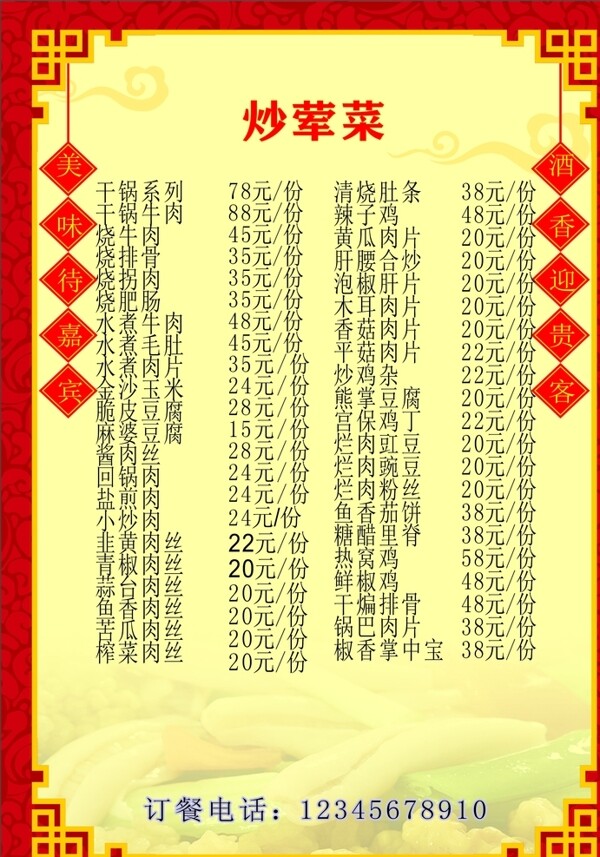 炒荤菜
美味待嘉宾
干锅系列 78元/份
干锅牛肉 88元/份
烧牛肉 45元/份
烧排骨 35元/份
烧拐肉 35元/份
烧肥肠 35元/份
水煮牛肉 48元/份
水煮毛肚 45元/份
水煮肉片 35元/份
金沙玉米 24元/份
脆皮豆腐 28元/份
麻婆豆腐 15元/份
酱肉丝 28元/份
回锅肉 24元/份
盐煎肉 24元/份
小炒肉 24元/份
韭黄肉丝 22元/份
青椒肉丝 20元/份
蒜台肉丝 20元/份
鱼香肉丝 20元/份
苦瓜肉丝 20元/份
榨菜肉丝 20元/份
清烧肚条 38元/份
辣子鸡 48元/份
黄瓜肉片 20元/份
肝腰合炒 20元/份
泡椒肝片 20元/份
木耳肉片 20元/份
香菇肉片 20元/份
平菇肉片 22元/份
炒鸡杂 22元/份
熊掌豆腐 20元/份
宫保鸡丁 22元/份
烂肉豇豆 20元/份
烂肉豌豆 20元/份
烂肉粉丝 20元/份
鱼香茄饼 38元/份
糖醋里脊 38元/份
热窝鸡 58元/份
鲜椒鸡 48元/份
干煸排骨 48元/份
锅巴肉片 38元/份
椒香掌中宝 38元/份
酒香迎贵客
订餐电话：12345678910